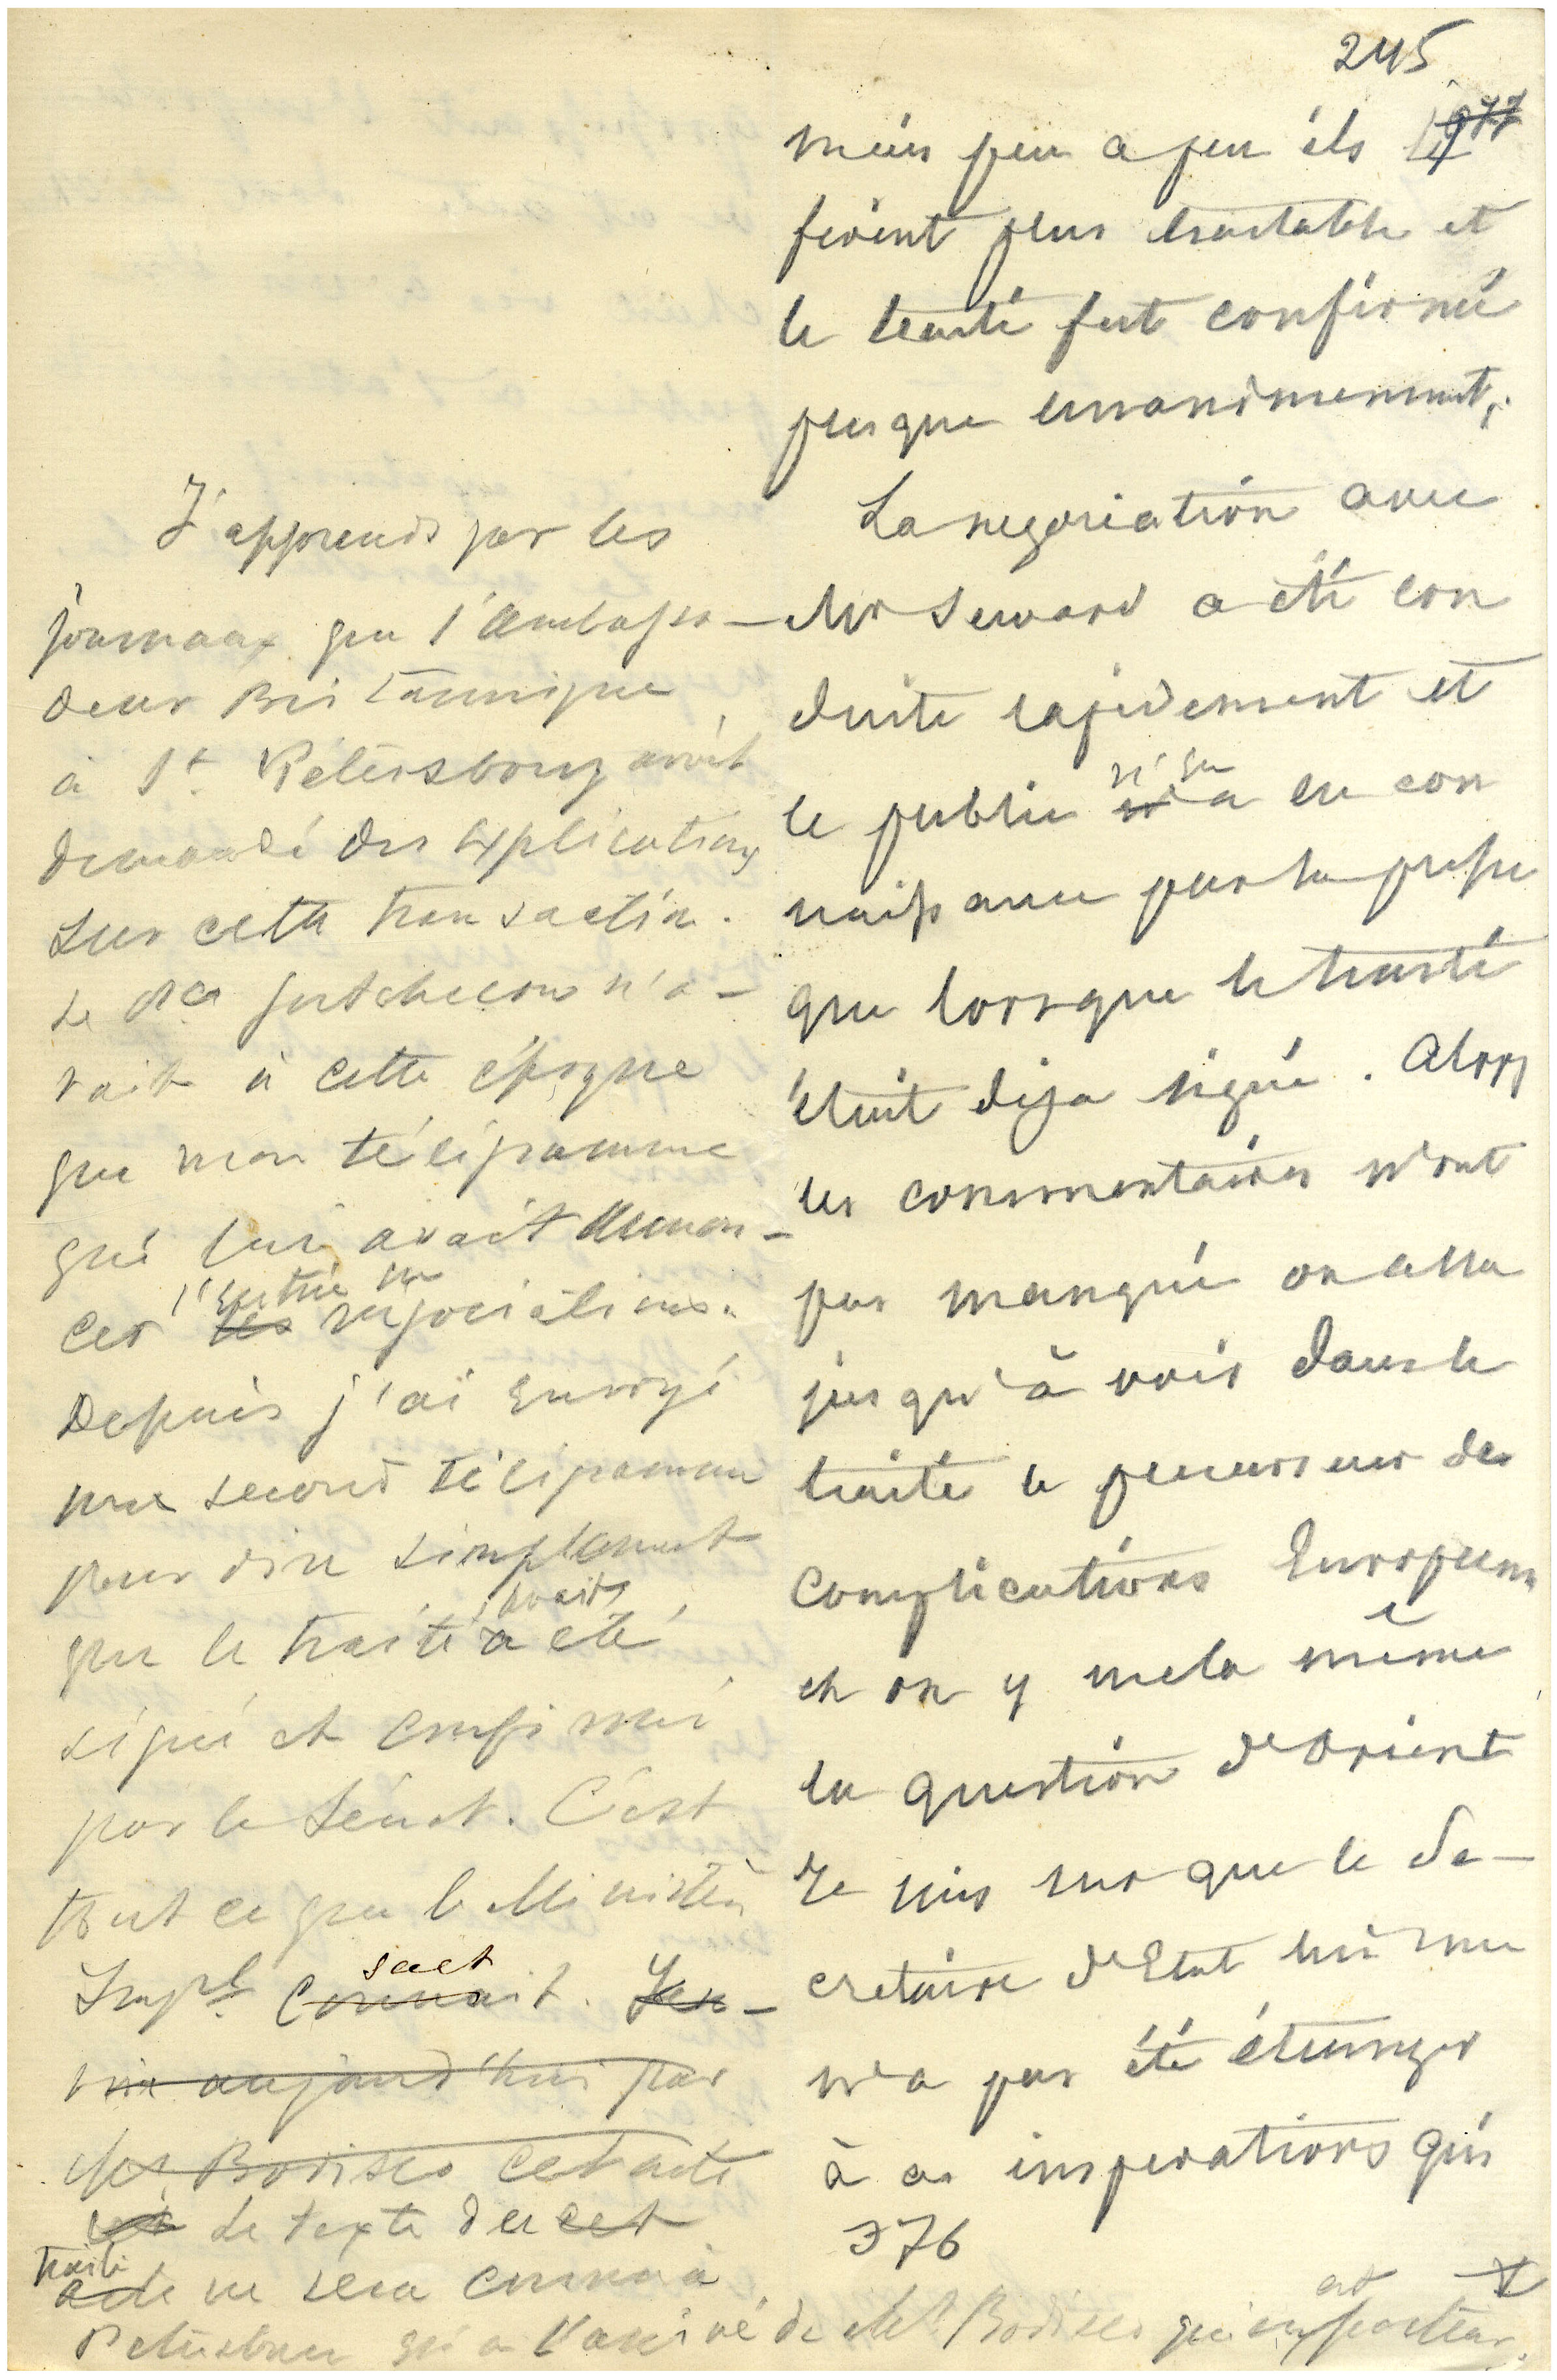 245
977
mais peu a peu ils
firent plus tractable et
le traité fut confirmé
presque unanimement.
La negociation avec
Mr Seward a été con
duite rapidement et
n'en
le public n'a eu con
naissance par la presse
que lorsque le traité
était deja signé. Alors
les commentaires n'ont
pas manqué on alla
jusqu'à voir dans le
traité le precurseur des
complications Européens
et on y mela même
la question d'Orient
Je suis sur que le Se-
cretaire d'Etat lui même
n'a pas été étranger
à ces inspirations qui
376
J'apprends par les
journaux que l'ambassa-
deur Britannique
à St. Pétersbourg avait
demandé des explications
sur cette transaction.
Le Pce Gortchacow n'a-
vait à cette époque
que mon télégramme
qui lui avait annon-
l'entrée en
cer les négociations.
Depuis j'ai envoyé
un second télégramme
pour dire simplement
avait
que le traité a été
signé et confirmé
par le Sénat. C'est
tout ce que le Ministère
sait
Impl connait. J'en-
voie aujourd'hui par
Mr Bodisco cet acte
Le texte de cet
traité
acte ne sera connu à
Petersbourg qu'a l'arrivé de Mr Bodisco qui en
est
porteur.